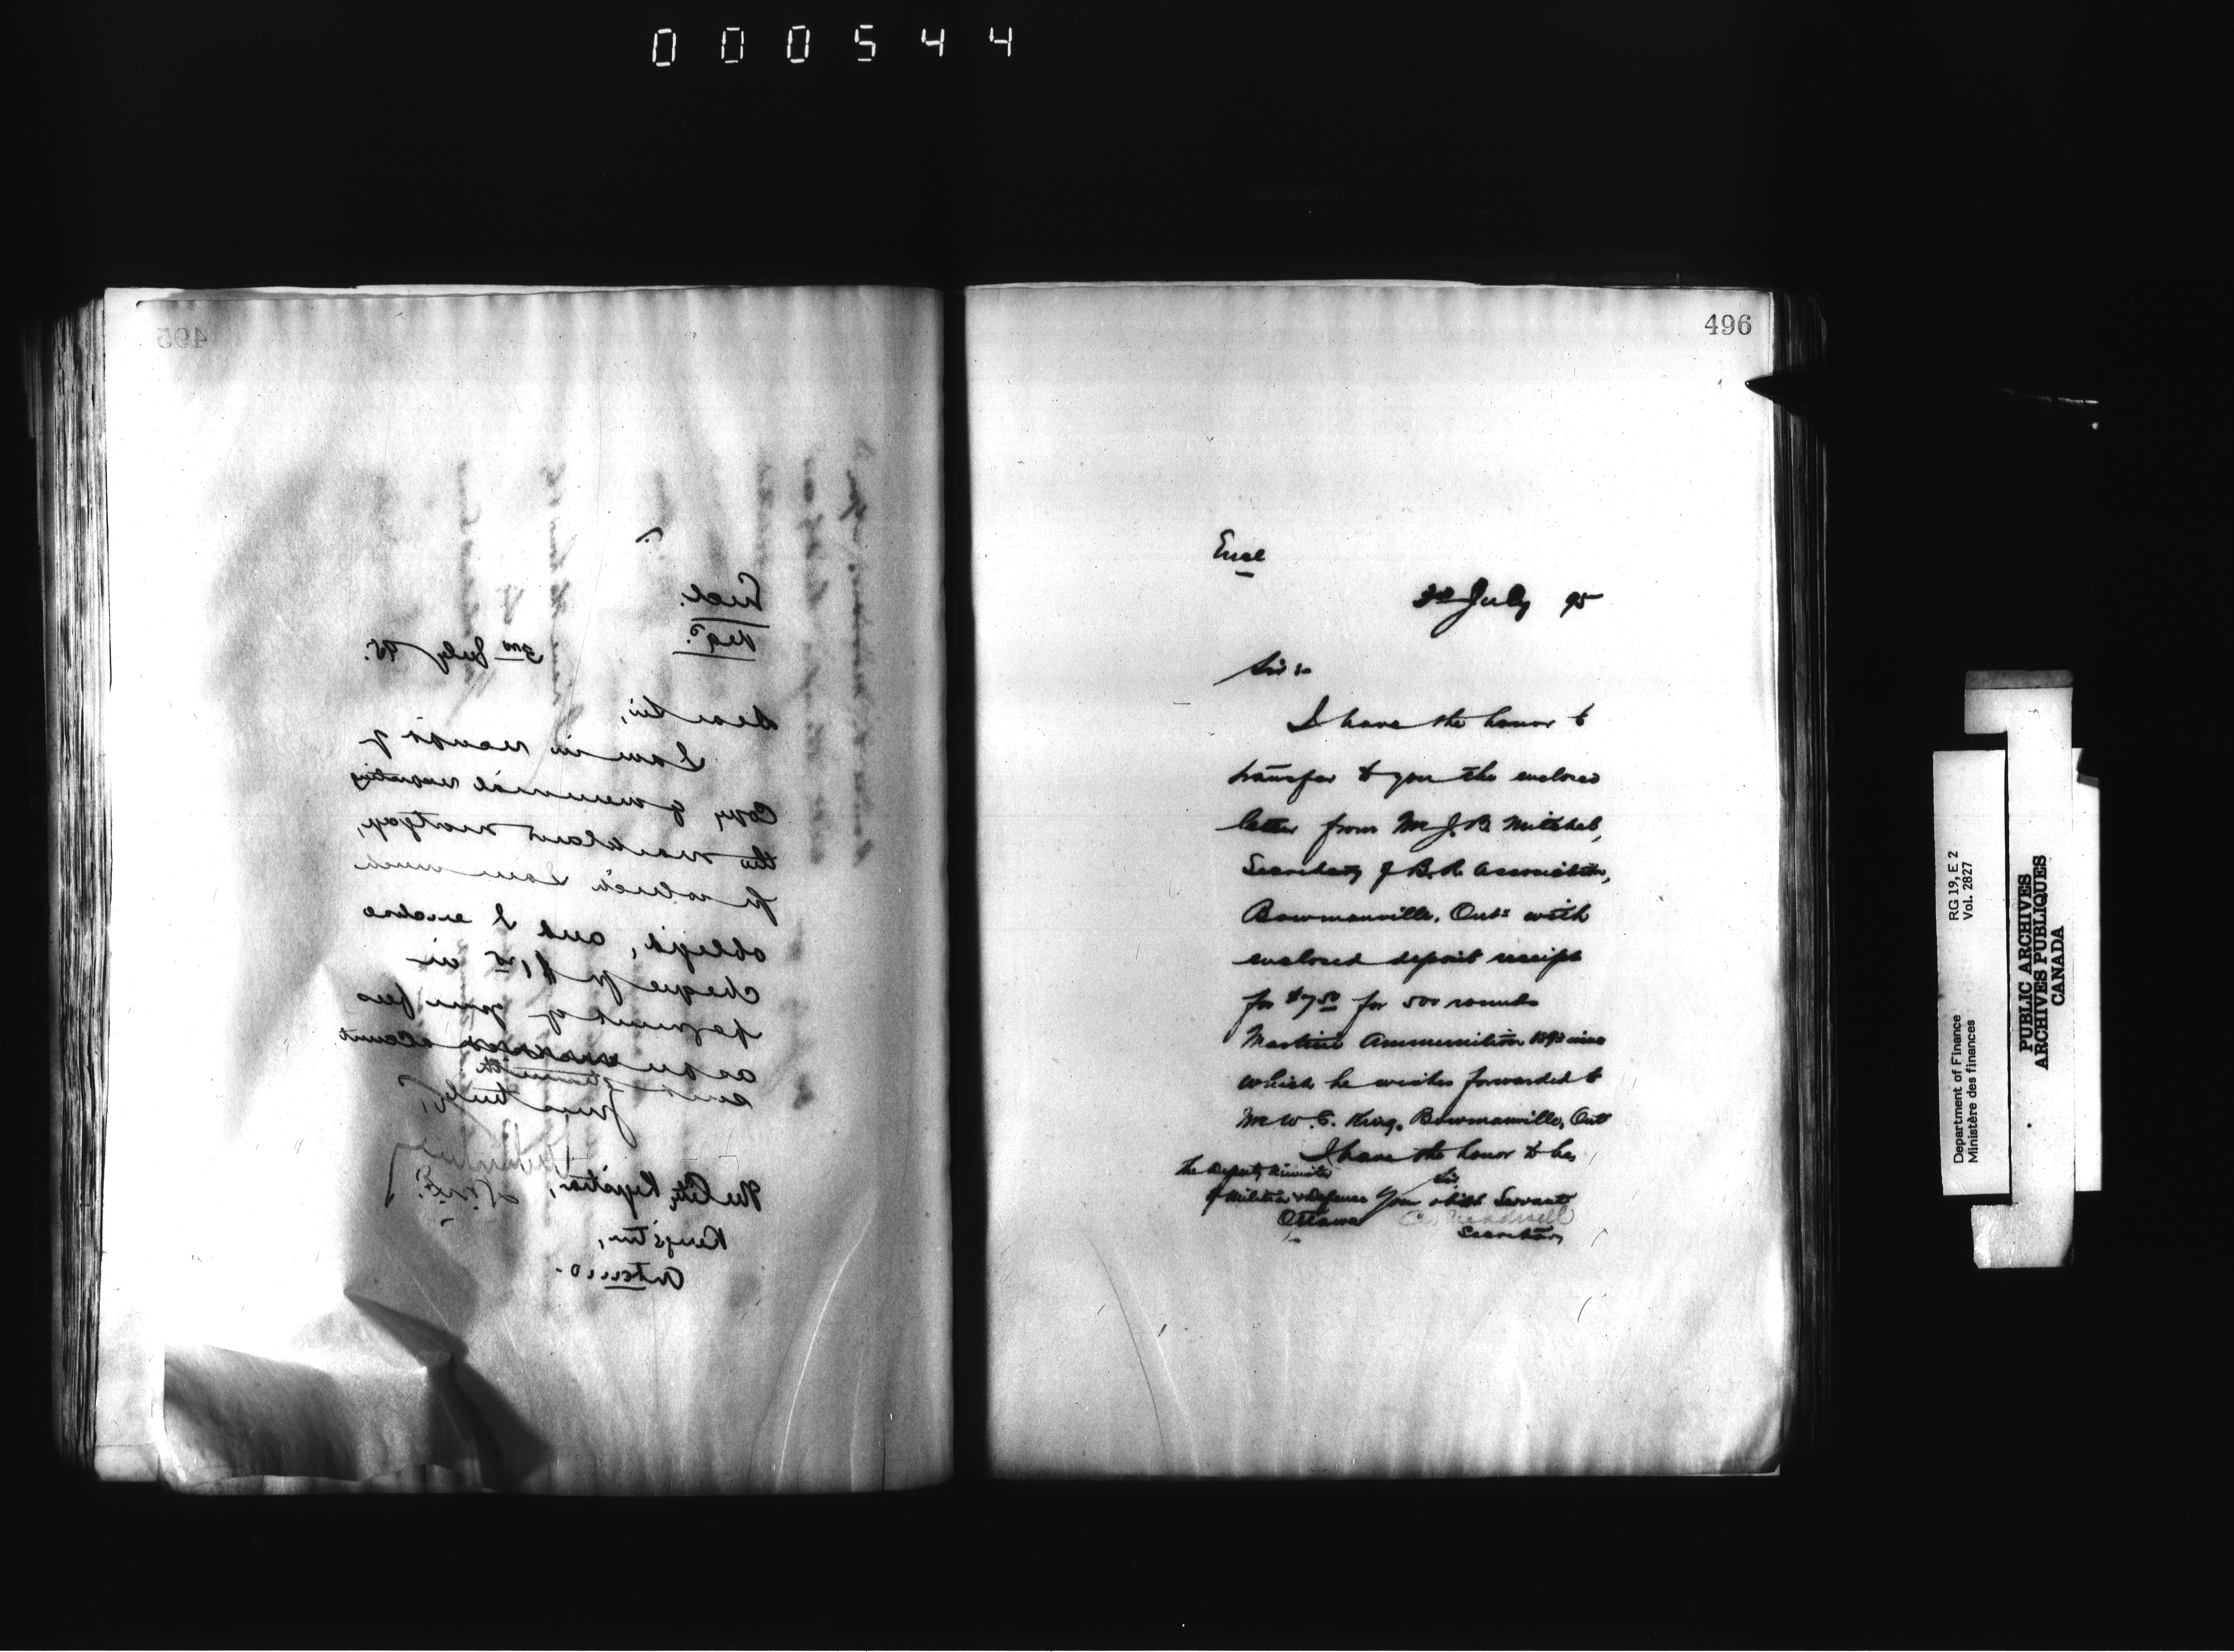 000544
495
Encl.
Regd.
3rd July 95.
Dear Sir,
I am in receipt of
Copy of memorial
the mortgage,
for which I am much
obliged, and I enclose
cheque for $1
payment of your fees
as per account
sent
Yours truly,
The City Registrar,
Kingston,
Ontario.
496
Encl
3rd July 95
Sir :-
I have the honor to
transfer to you the enclosed
letter from Mr J. B. Mitchel,
Secretary of B. R. Association,
Bowmanville, Ont: with
enclosed deposit receipt
for $7.50 for 500 rounds
Martini Ammunition
which he wishes forwarded to
Mr W. C. King, Bowmanville, Ont
I have the honor to be,
Sir
The Deputy Minister
of Militia & Defence
Your obdt Servant
Ottawa
Secretary
Department of Finance RG 19, E 2
Ministère des finances Vol. 2827
PUBLIC ARCHIVES
ARCHIVES PUBLIQUES
CANADA